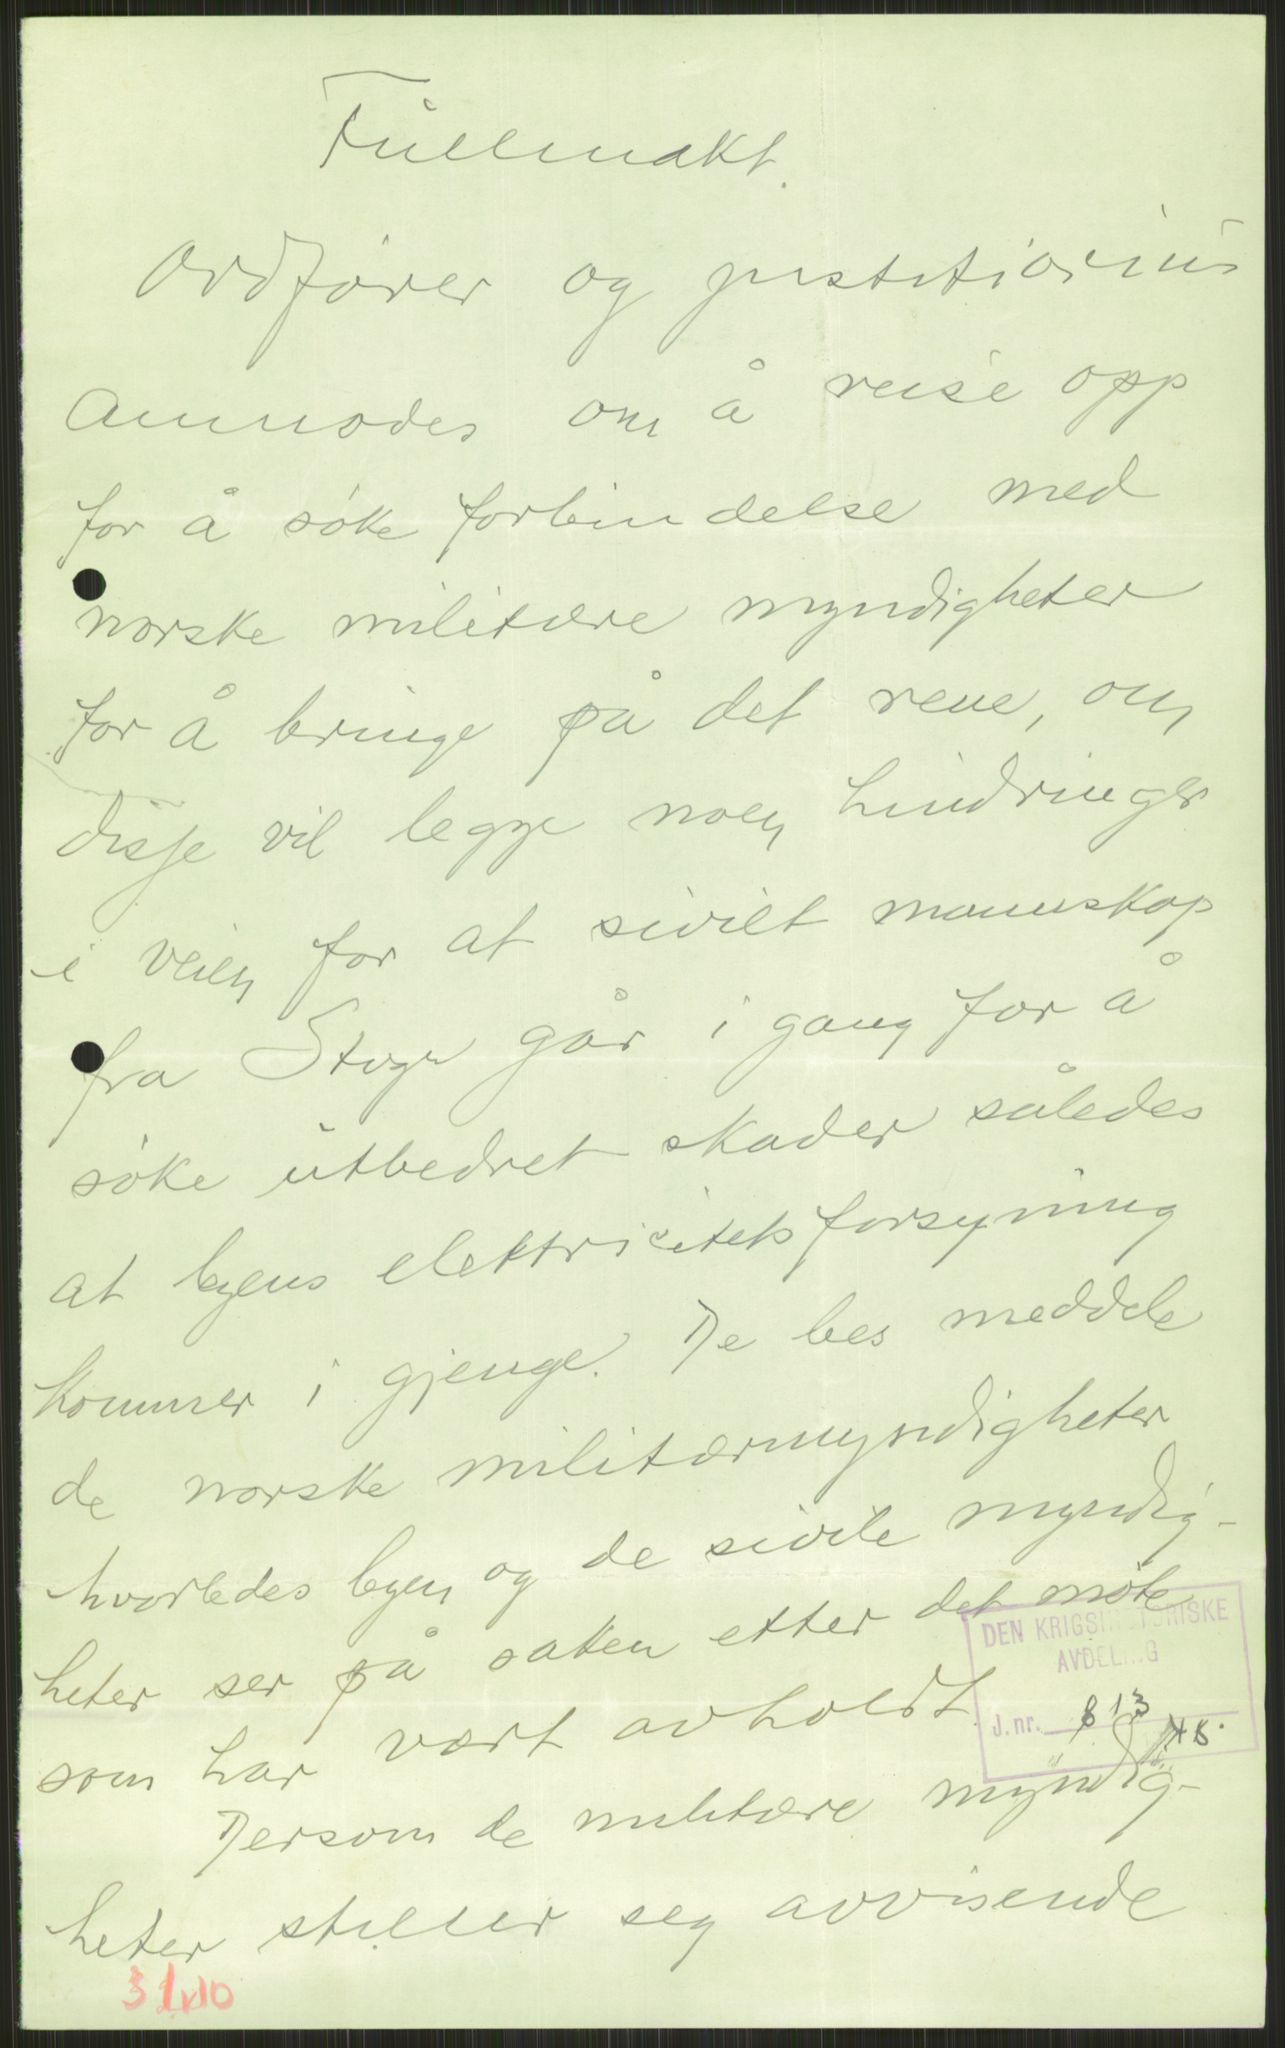 Fullmakt.
Ordfører og justitiarius
anmodes om å reise opp
for å søke forbindelse med
norske militære myndigheter
for å bringe på det rene, om
disse vil legge noen hindringer
i veien for at sivilt mannskap
fra går i gang for å
søke utbedret skader således
at byens elektricitetsforsyning
kommer i gjenge. De bes meddele
de norske militærmyndigheter
hvorledes byen og de sivile myndig-
heter ser på saken etter det møte
som har vært avholdt.
Dersom de militære myndig-
heter stiller seg avvisende
DEN KRIGSHISTORISKE
AVDELING
J. nr. 813
31.10